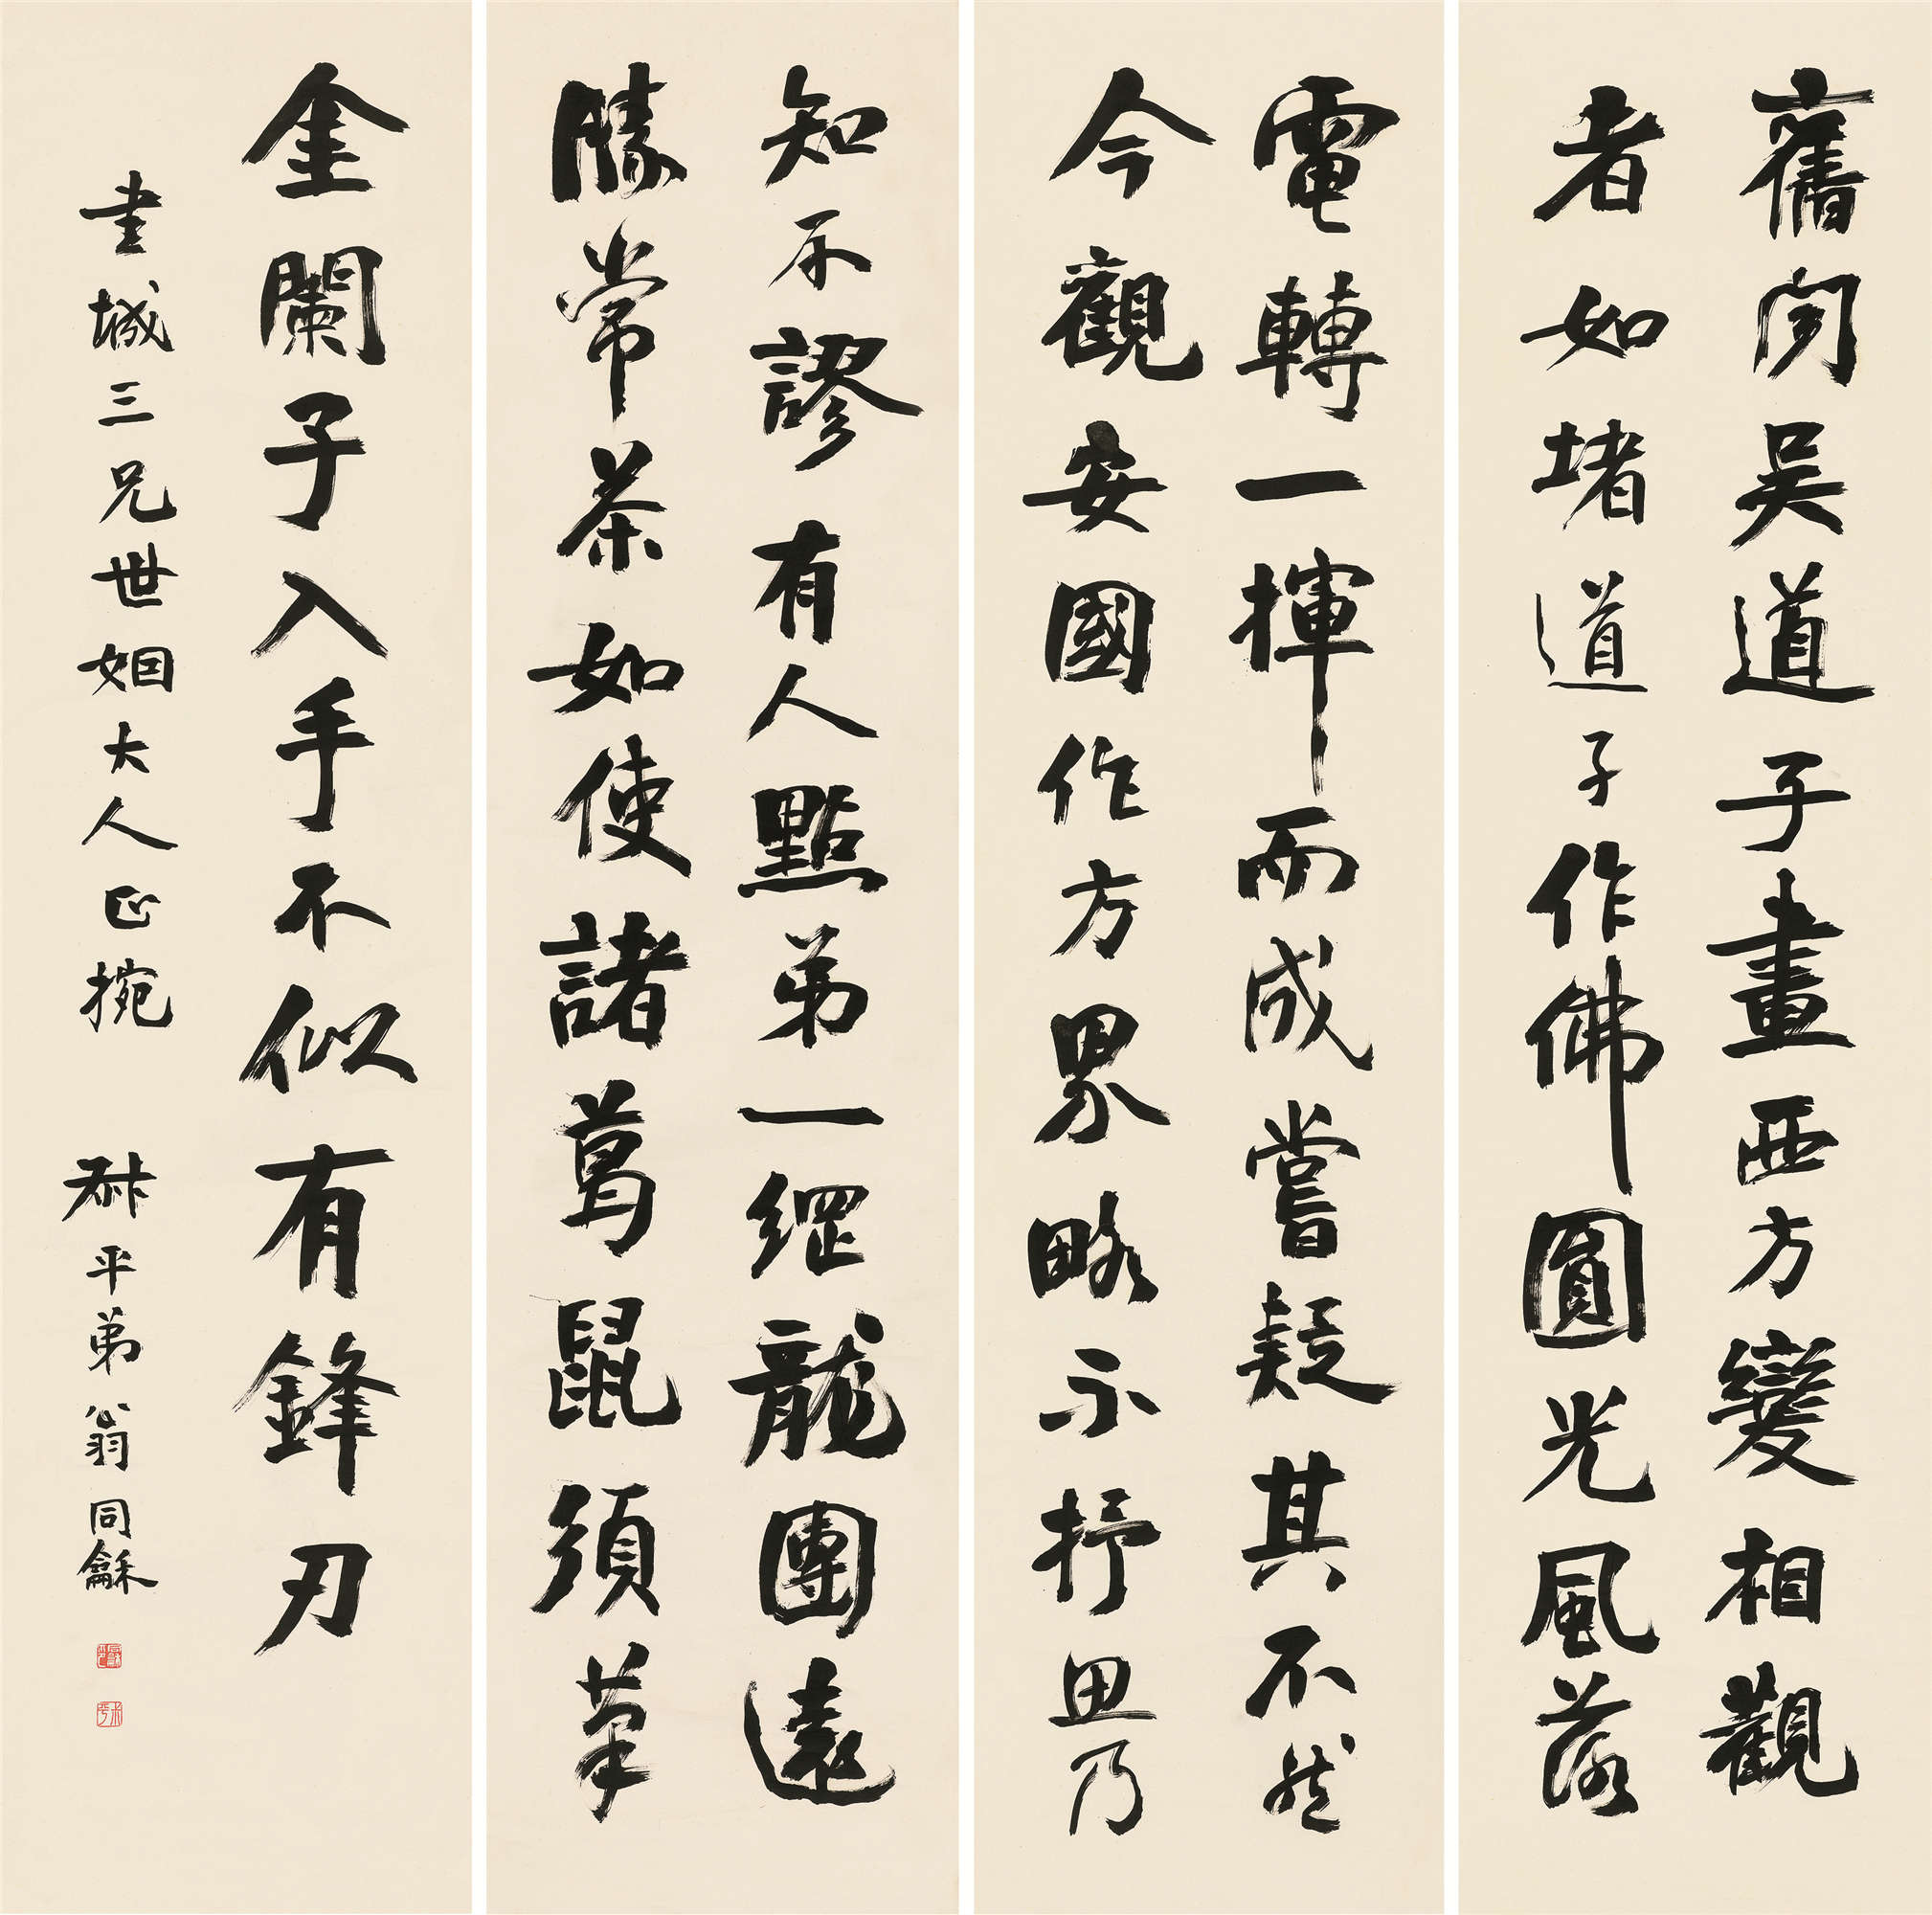 舊閔吳道子畫西方變相觀
者如堵道子作佛圓光風落
電轉一揮而成嘗疑其不然
今觀安國作方界略不抒思乃
知不謬有人點弟一綱龍團遠
勝常茶如使諸葛鼠須筆
金闌子入手不似有鋒刃
書城三兄世姻大人正捥 尗平弟翁同龢